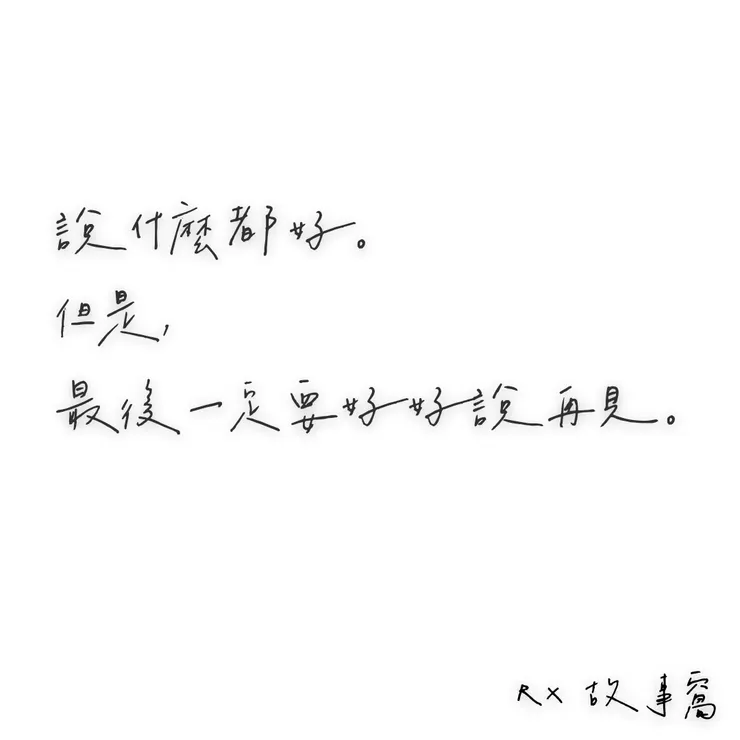 說什麼都好。
但是,
最後一定要好好說再見。
RX 故事窩